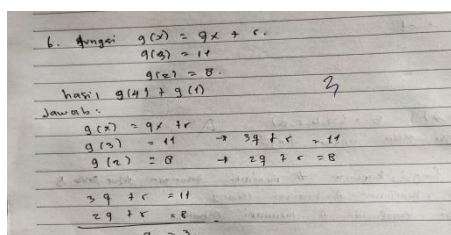 6. fungsi g(x) = qx + r.
g(3) = 11
g(2) = 8.
hasil g(4) + g(1)
3
Jawab:
g(x) = qx + r
g(3) = 11 → 3q + r = 11
g(2) = 8 → 2q + r = 8
3q + r = 11
2q + r = 8
q = 3